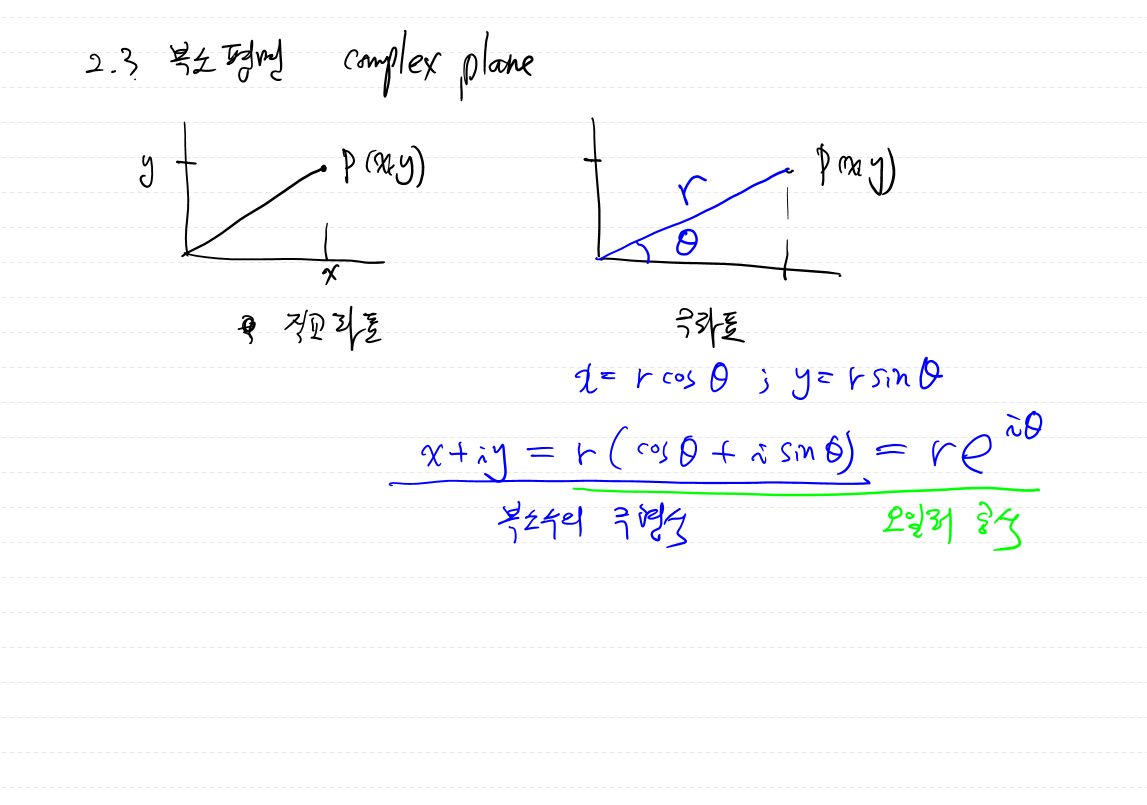 2.3 복소평면 complex plane
y P(x,y)
r P(x,y)
θ
x
직교좌표 극좌표
x = r cos θ ; y = r sin θ
x + iy = r (cos θ + i sin θ) = r e^{iθ}
복소수의 극형식 오일러 공식